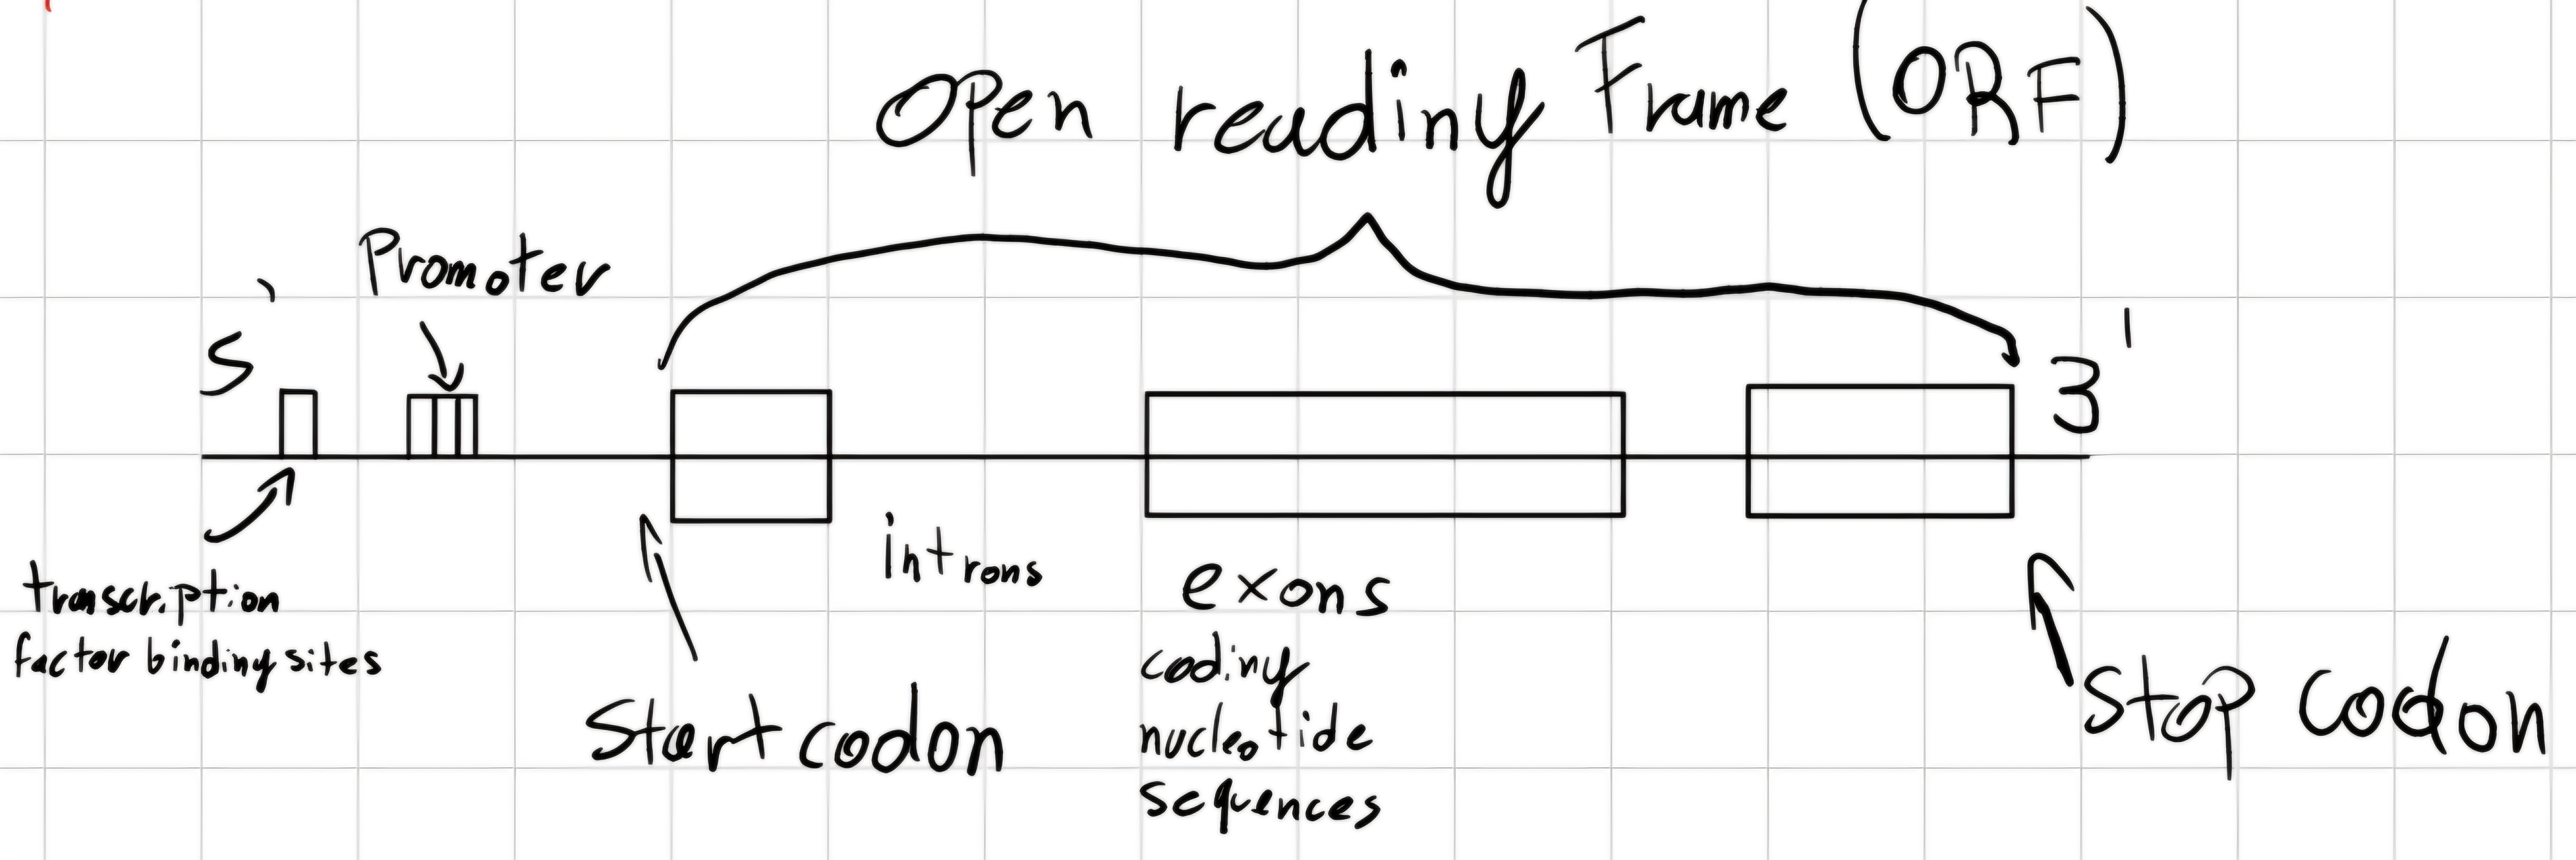 Open reading Frame (ORF)
Promoter
5'
3'
transcription
factor binding sites
introns
exons
coding
nucleotide
sequences
Start codon
Stop codon